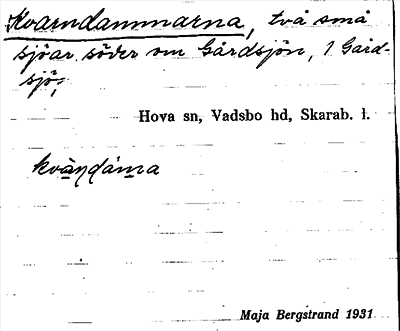 Kvarndammarna, två små
sjöar söder om Gårdsjön, 1 Gård-
sjö;
Hova sn, Vadsbo hd, Skarab. l.
kvàṇdám̲a
Maja Bergstrand 1931